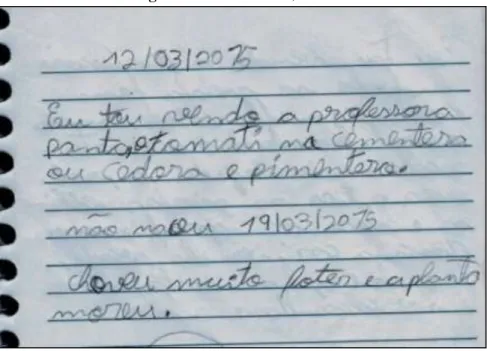 12/03/2015
Eu tou vendo a professora
panta, otomati na cementera
ou cedora e pimentera.
não naceu 19/03/2015
choveu muito foten e a planta
moreu.